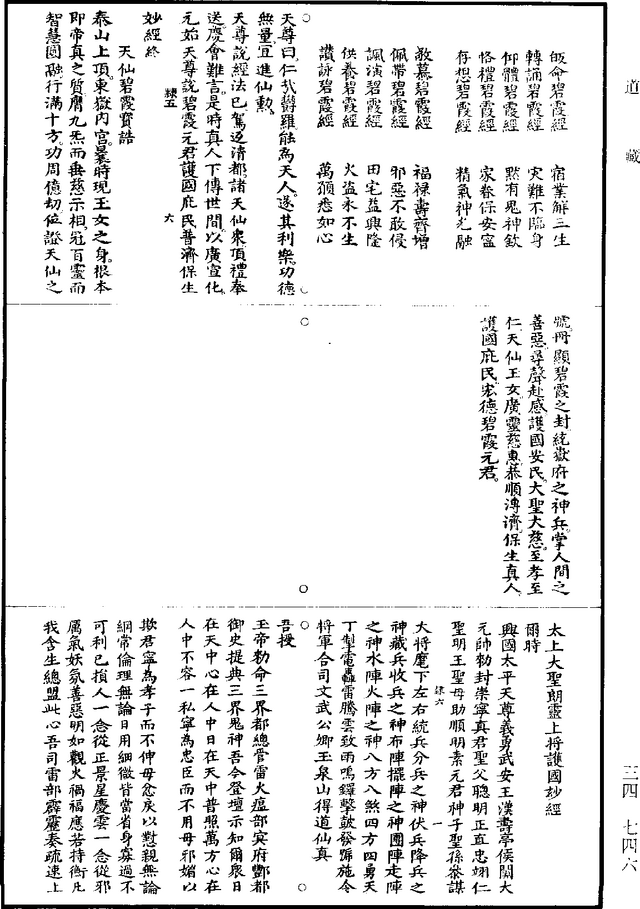 道藏
三四 七四六
皈命碧霞經 宿業解三生
轉誦碧霞經 災難不臨身
仰體碧霞經 黙有鬼神欽
恪禮碧霞經 家眷保安寧
存想碧霞經 精氣神光融
敬慕碧霞經 福祿壽齊增
佩帶碧霞經 邪惡不敢侵
諷演碧霞經 田宅益興隆
供養碧霞經 火盜永不生
讚詠碧霞經 萬願悉如心
天尊曰仁孝爵羅能為天人遂其利樂功德
無量宜進仙勳
天尊說經法已駕返清都諸天仙衆頂禮奉
送慶會難言是時真人下傳世間以廣宣化
元始天尊說碧霞元君護國庇民普濟保生
隸五 六
妙經終
天仙碧霞寶誥
泰山上頂東嶽內宮曩時現玉女之身根本
即帝真之質膺九炁而垂慈示相冠百靈而
智慧圓融行滿十方功周億劫位證天仙之
號冊顯碧霞之封統嶽府之神兵掌人間之
善惡尋聲赴感護國安民大聖大慈至孝至
仁天仙玉女廣靈慈惠恭順溥濟保生真人
護國庇民宏德碧霞元君
太上大聖朗靈上將護國妙經
爾時
興國太平天尊義勇武安王漢壽亭侯關大
元帥勑封崇寧真君聖父聰明正直忠翊仁
聖明王聖母助順明素元君神子聖孫參謀
隸六 一
大將麾下左右統兵分兵之神伏兵降兵之
神藏兵收兵之神布陣擺陣之神團陣走陣
之神水陣火陣之神八方八煞四方四勇天
丁掣電轟雷騰雲致雨鳴鑼擊鼓發號施令
將軍合司文武公卿玉泉山得道仙真
吾授
玉帝勑命三界都總管雷火瘟部冥府酆都
御史提典三界鬼神吾今登壇示知爾衆日
在天中心在人中日在天中普照萬方心在
人中不容一私寧為忠臣而不用毋邪媚以
欺君寧為孝子而不伸毋忿戾以懟親無論
綱常倫理無論日用細微皆當省身寡過不
可利己損人一念從正景星慶雲一念從邪
厲氣妖氛善惡明如觀火禍福應若持衡凡
我含生總盟此心吾司雷部霹靂奏疏速上